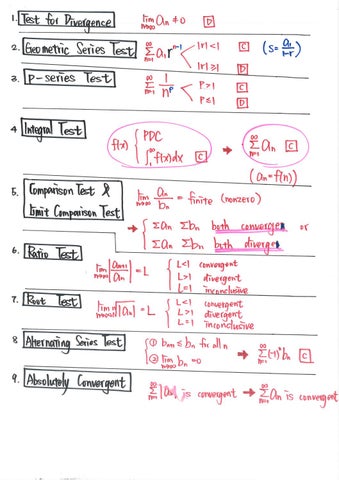 1. Test for Divergence lim n→∞ aₙ ≠ 0 D
2. Geometric Series Test ∞ Σ n=1 a₁rⁿ⁻¹ |r|<1 C (S= a₁/1-r)
|r|≥1 D
3. p-series Test ∞ Σ n=1 1/nᵖ p>1 C
p≤1 D
4 Integral Test f(x) { PDC ∫₁^∞ f(x)dx C → ∞ Σ n=1 aₙ C
(aₙ = f(n))
5. Comparison Test & Limit Comparison Test lim n→∞ aₙ/bₙ = finite (nonzero)
→ { Σaₙ Σbₙ both converge or
Σaₙ Σbₙ both diverge
6. Ratio Test lim n→∞ |aₙ₊₁/aₙ| = L { L<1 convergent
L>1 divergent
L=1 inconclusive
7. Root Test lim n→∞ ⁿ√|aₙ| = L { L<1 convergent
L>1 divergent
L=1 inconclusive
8 Alternating Series Test { ① bₙ₊₁ ≤ bₙ for all n
② lim n→∞ bₙ = 0 → ∞ Σ n=1 (-1)ⁿbₙ C
9. Absolutely Convergent
∞ Σ n=1 |aₙ| is convergent → ∞ Σ n=1 aₙ is convergent